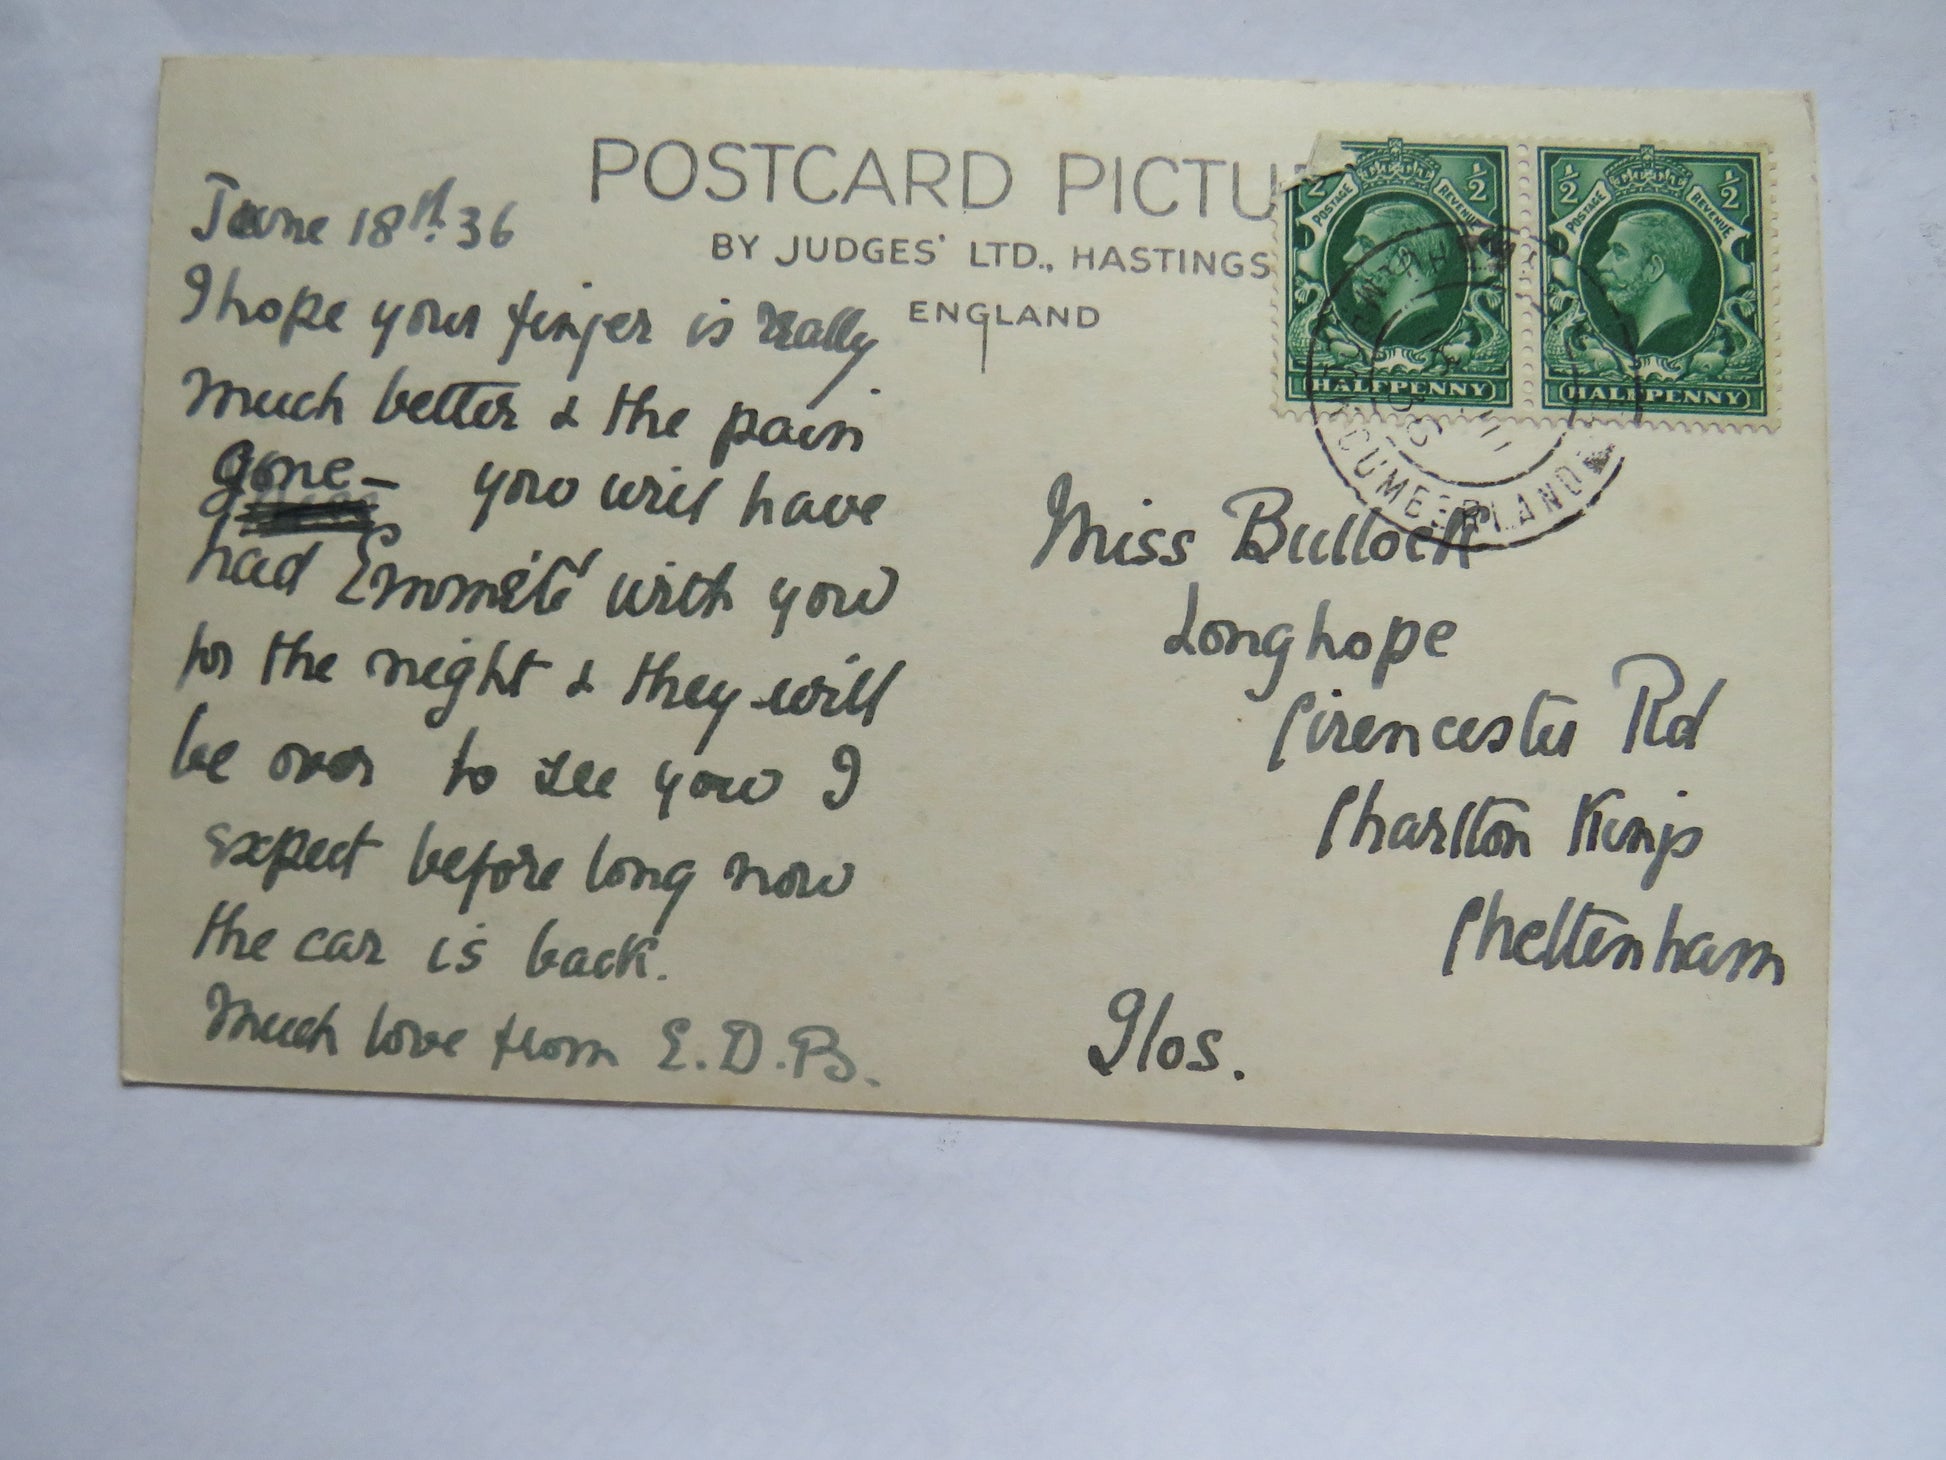 POSTCARD PICTU
BY JUDGES' LTD., HASTINGS
ENGLAND
½ ½
POSTAGE REVENUE
HALFPENNY
½ ½
POSTAGE REVENUE
HALFPENNY
CUMBERLAND
June 18th. 36
I hope your finger is really
much better & the pain
gone — you will have
had with you
for the night & they will
be over to see you I
expect before long now
the car is back.
Much love from E.D.B.
Miss Bullock
Longhope
Cirencester Rd
Charlton Kings
Cheltenham
Glos.